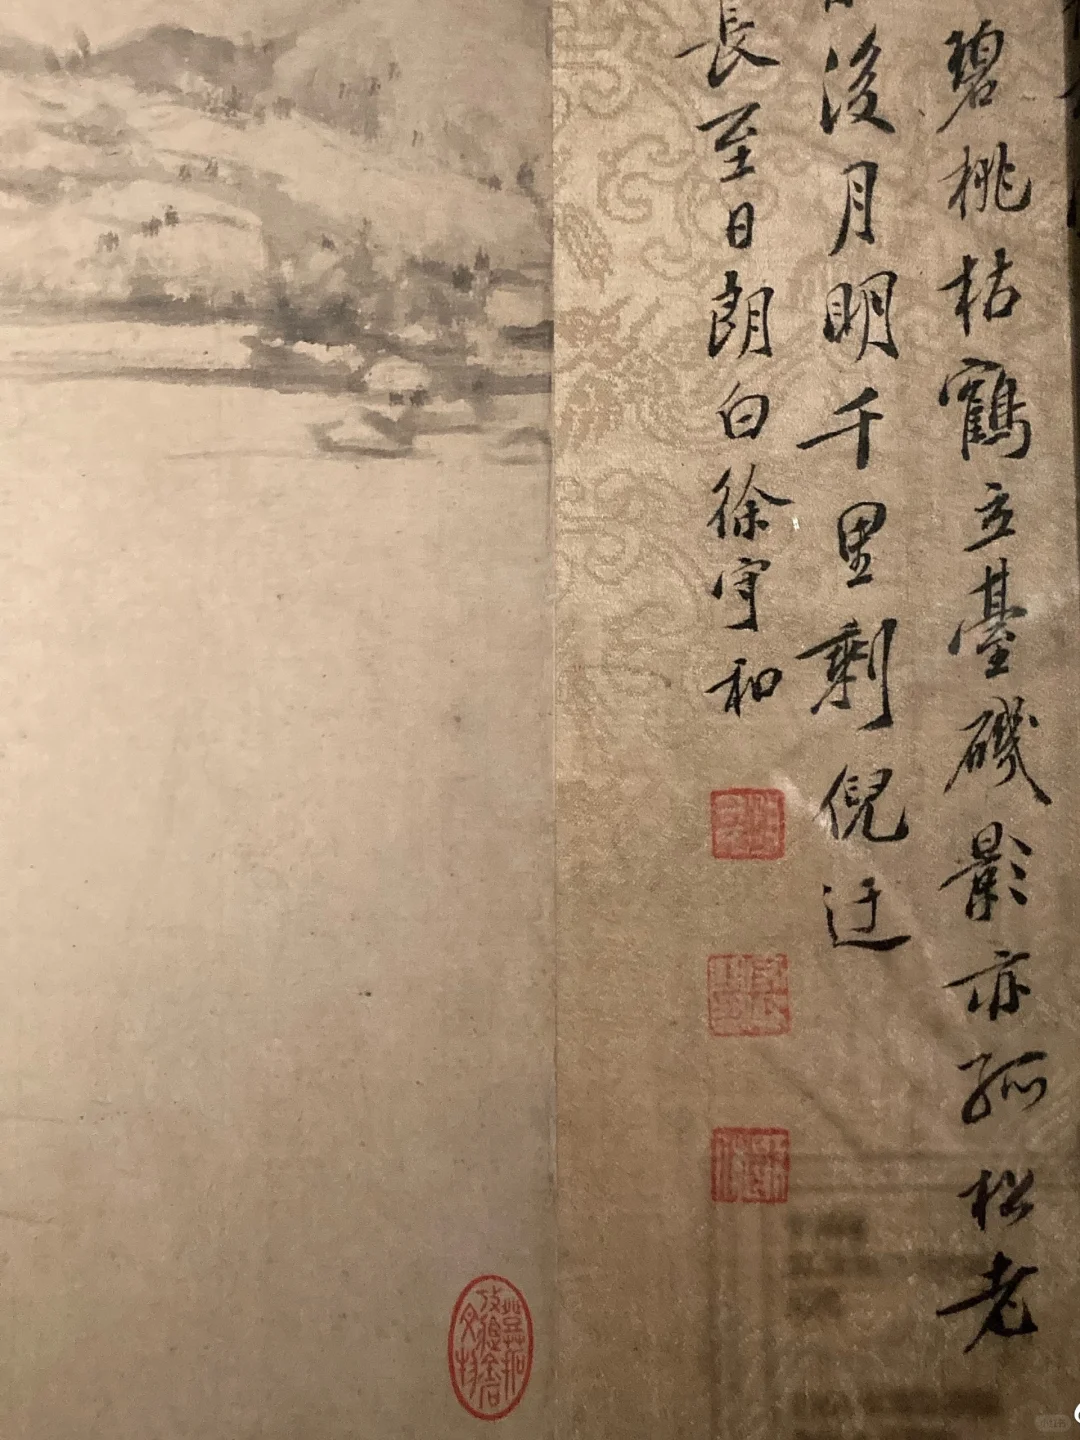 碧桃枯鶴立臺磯影亦孤松老
後月明千里剩倪迂
長至日朗白徐守和